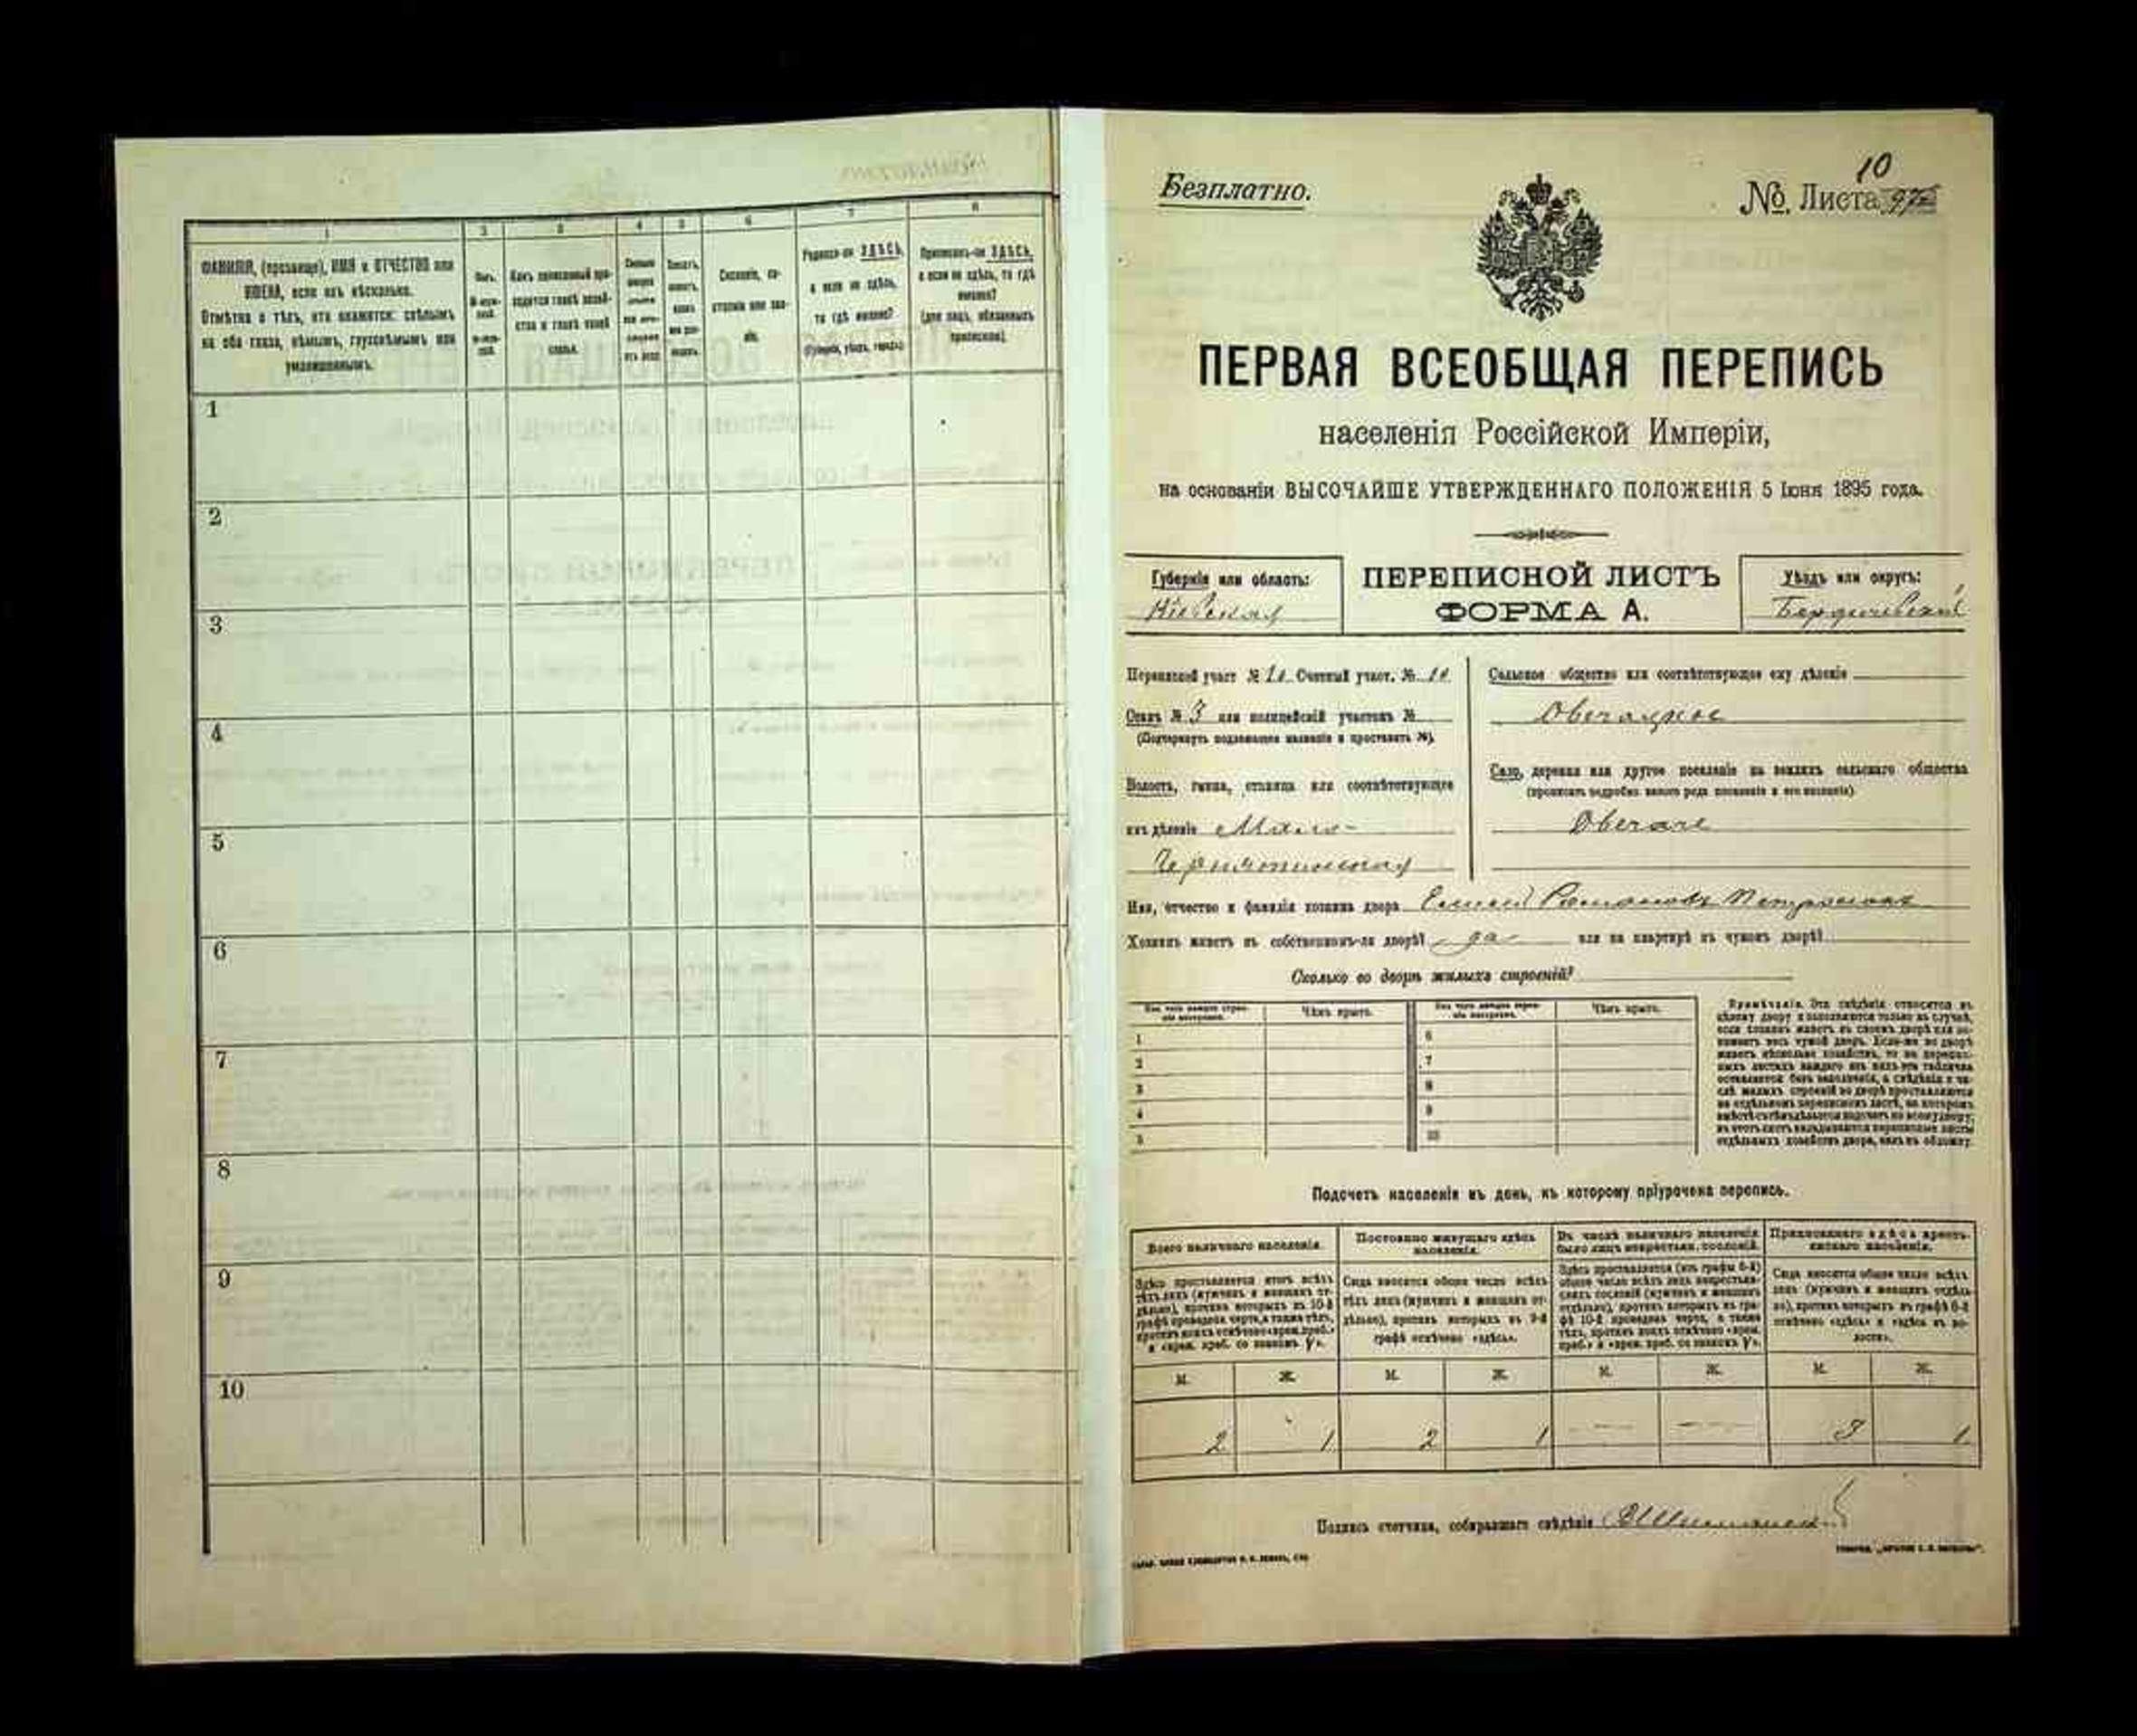 1 2 3 4 5 6 7 8
ФАМИЛІЯ, (прозвище), ИМЯ и ОТЧЕСТВО или
ИМЕНА, если ихъ нѣсколько.
Отмѣтка о тѣхъ, кто окажется: слѣпымъ
на оба глаза, нѣмымъ, глухонѣмымъ или
умалишеннымъ.
Полъ.
Какъ записанный при-
ходится главѣ хозяй-
ства и главѣ своей
семьи.
Сословіе, со-
стояніе или зва-
ніе.
Родился-ли ЗДѢСЬ,
а если не здѣсь,
то гдѣ именно?
(Губернія, уѣздъ, городъ)
Приписанъ-ли ЗДѢСЬ,
а если не здѣсь, то гдѣ
именно?
(для лицъ, обязанныхъ
припискою).
1
2
3
4
5
6
7
8
9
10
Безплатно.
10
№ Листа
ПЕРВАЯ ВСЕОБЩАЯ ПЕРЕПИСЬ
населенія Россійской Имперіи,
на основаніи ВЫСОЧАЙШЕ УТВЕРЖДЕННАГО ПОЛОЖЕНІЯ 5 Іюня 1895 года.
Губернія или область:
Кіевская
ПЕРЕПИСНОЙ ЛИСТЪ
ФОРМА А.
Уѣздъ или округъ:
Бердичевскій
Переписной участ. № Счетный участ. №
Станъ № 3 или полицейскій участокъ №
(Подчеркнуть подлежащее названіе и проставить №).
Волость, гмина, станица или соотвѣтствующее
имъ дѣленіе Мало-
Чернятинская
Сельское общество или соотвѣтствующее ему дѣленіе
Овечацкое
Село, деревня или другое поселеніе на земляхъ сельскаго общества
(прописать подробно какого рода поселеніе и его названіе)
Овечаче
Имя, отчество и фамилія хозяина двора Романовъ
Хозяинъ живетъ въ собственномъ-ли дворѣ? да или на квартирѣ въ чужомъ дворѣ?
Сколько во дворѣ жилыхъ строеній?
Изъ чего каждое строе-
ніе построено.
Чѣмъ крыто.
Изъ чего каждое строе-
ніе построено.
Чѣмъ крыто.
1 6
2 7
3 8
4 9
5 10
Примѣчаніе. Эти свѣдѣнія относятся къ
цѣлому двору и заполняются только въ случаѣ,
если хозяинъ живетъ въ своемъ дворѣ или за-
нимаетъ весь чужой дворъ. Если-же во дворѣ
живетъ нѣсколько хозяйствъ, то на перепис-
ныхъ листахъ каждаго изъ нихъ эта табличка
оставляется безъ заполненія, а свѣдѣнія о чи-
слѣ жилыхъ строеній во дворѣ проставляются
на отдѣльномъ переписномъ листѣ, на которомъ
вмѣстѣ съ тѣмъ дѣлается подсчетъ по всему двору;
въ этотъ листъ вкладываются переписные листы
отдѣльныхъ хозяйствъ двора, какъ въ обложку.
Подсчетъ населенія въ день, къ которому пріурочена перепись.
Всего наличнаго населенія.
Здѣсь проставляется итогъ всѣхъ
тѣхъ лицъ (мужчинъ и женщинъ от-
дѣльно), противъ которыхъ въ 10-й
графѣ проведена черта, а также тѣхъ,
противъ коихъ отмѣчено «врем. преб.»
и «врем. преб. со знакомъ V».
Постоянно живущаго здѣсь
населенія.
Сюда вносится общее число всѣхъ
тѣхъ лицъ (мужчинъ и женщинъ от-
дѣльно), противъ которыхъ въ 9-й
графѣ отмѣчено «здѣсь».
Въ числѣ наличнаго населенія
было лицъ некрестьян. сословій.
Здѣсь проставляется (изъ графы 6-й)
общее число всѣхъ лицъ некрестьян-
скихъ сословій (мужчинъ и женщинъ
отдѣльно), противъ которыхъ въ гра-
фѣ 10-й проведена черта, а также
тѣхъ, противъ коихъ отмѣчено «врем.
преб.» и «врем. преб. со знакомъ V».
Приписаннаго здѣсь кресть-
янскаго населенія.
Сюда вносится общее число всѣхъ
лицъ (мужчинъ и женщинъ отдѣль-
но), противъ которыхъ въ графѣ 8-й
отмѣчено «здѣсь» и «здѣсь въ во-
лости».
М. Ж. М. Ж. М. Ж. М. Ж.
2 1 2 1 — — 3 1
Подпись счетчика, собиравшаго свѣдѣнія